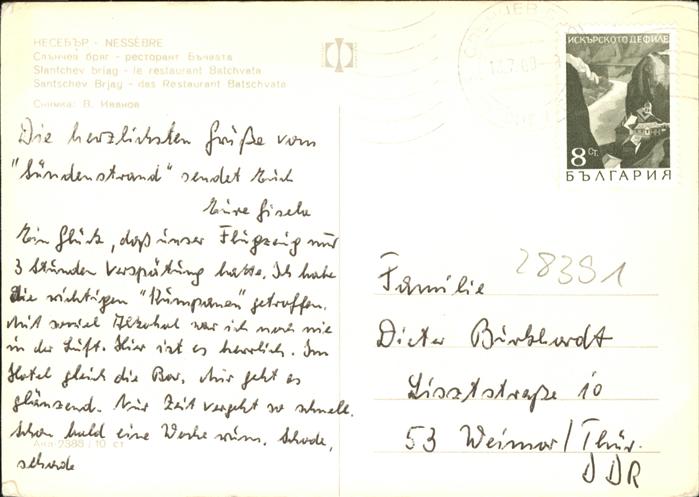 НЕСЕБЪР - NESSÈBRE
Слънчев бряг - ресторант Бъчвата
Slantchev briag - le restaurant Batchvata
Santschev Brjag - das Restaurant Batschvata
Снимка: В. Иванов
Die herzlichsten Grüße vom
"Sündenstrand" sendet Euch
Eure Gisela
Ein Glück, daß unser Flugzeug nur
3 Stunden Verspätung hatte. Ich habe
die richtigen "Kumpanen" getroffen.
Mit soviel Alkohol war ich noch nie
in der Luft. Hier ist es herrlich. Im
Hotel gleich die Bar. Mir geht es
glänzend. Nur Zeit vergeht so schnell.
Schon bald eine Woche rum. Schade,
schade
10 ст
ИСКЪРСКОТО ДЕФИЛЕ
8 СТ.
БЪЛГАРИЯ
28391
Familie
Dieter Burkhardt
Lisztstraße 10
53 Weimar/Thür.
DDR